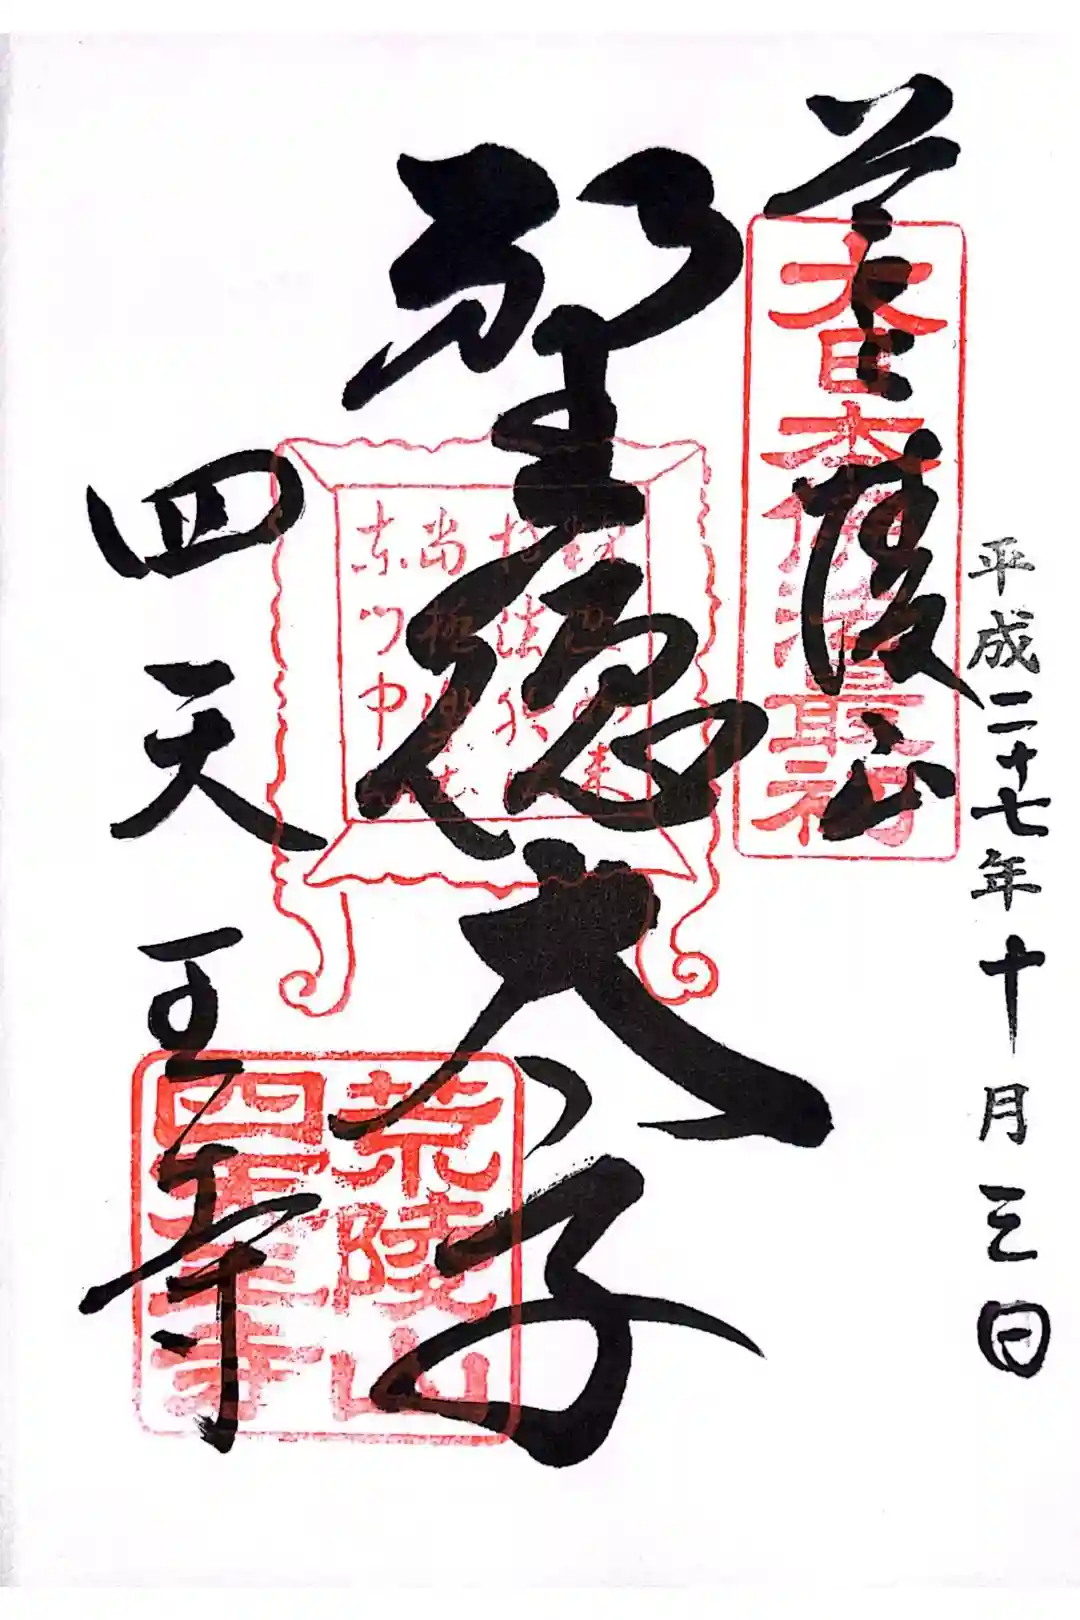 平成二十七年十月三日
荒陵山
大日本佛法最初
聖徳太子
東門中心
四天王寺
荒陵山
四天王寺